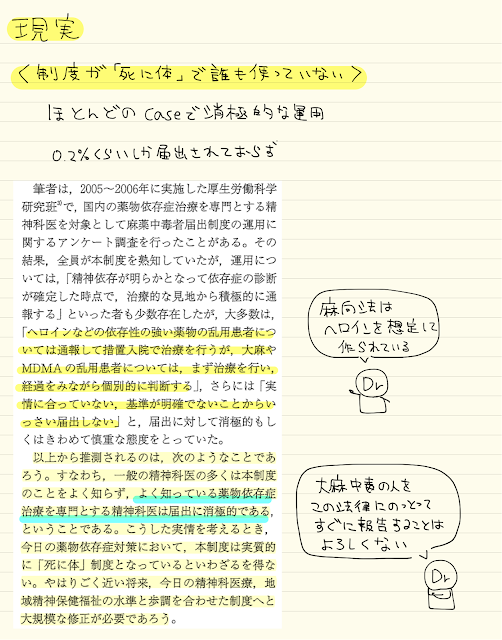 現実
〈制度が「死に体」で誰も使っていない〉
ほとんどのcaseで消極的な運用
0.2%くらいしか届出されておらず
筆者は，2005〜2006年に実施した厚生労働科学
研究班³⁾で，国内の薬物依存症治療を専門とする精
神科医を対象として麻薬中毒者届出制度の運用に
関するアンケート調査を行ったことがある。その
結果，全員が本制度を熟知していたが，運用につ
いては，「精神依存が明らかとなって依存症の診断
が確定した時点で，治療的な見地から積極的に通
報する」といった者も少数存在したが，大多数は，
「ヘロインなどの依存性の強い薬物の乱用患者につ
いては通報して措置入院で治療を行うが，大麻や
MDMAの乱用患者については，まず治療を行い，
経過をみながら個別的に判断する」，さらには「実
情に合っていない，基準が明確でないことからい
っさい届出しない」と，届出に対して消極的もし
くはきわめて慎重な態度をとっていた。
以上から推測されるのは，次のようなことであ
ろう。すなわち，一般の精神科医の多くは本制度
のことをよく知らず，よく知っている薬物依存症
治療を専門とする精神科医は届出に消極的である，
ということである。こうした実情を考えるとき，
今日の薬物依存症対策において，本制度は実質的
に「死に体」制度となっているといわざるを得な
い。やはりごく近い将来，今日の精神科医療，地
域精神保健福祉の水準と歩調を合わせた制度へと
大規模な修正が必要であろう。
麻向法は
ヘロインを想定して
作られている
Dr
大麻中毒の人を
この法律にのっとって
すぐに報告することは
よろしくない
Dr